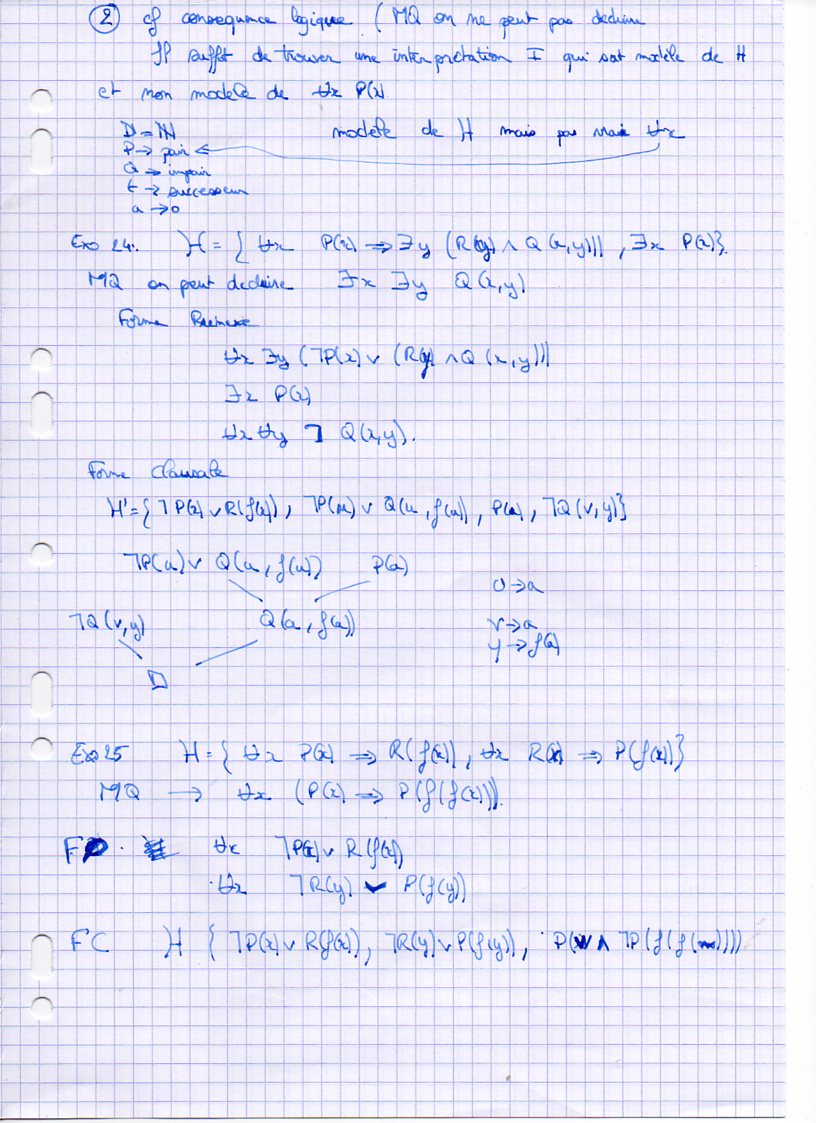 ② cf consequence logique ( MQ on ne peut pas deduire
Il suffit de trouver une interpretation I qui soit modèle de H
et non modele de ∀x P(x)
D = ℕ modèle de H mais pas vrai ∀x
P → pair ←
Q → impair
f → successeur
a → 0
Exo 24: H = { ∀x P(x) ⇒ ∃y (R(y) ∧ Q(x,y))) , ∃x P(x)}
MQ on peut deduire ∃x ∃y Q(x,y)
Forme Prenexe
∀x ∃y (¬P(x) ∨ (R(y) ∧ Q(x,y)))
∃x P(x)
∀x ∀y ¬ Q(x,y).
Forme Clausale
H' = { ¬P(x) ∨ R(f(x)) , ¬P(u) ∨ Q(u, f(u)) , P(a) , ¬Q(v,y)}
¬P(u) ∨ Q(u, f(u)) P(a)
u → a
¬Q(v,y) Q(a, f(a))
v → a
y → f(a)
□
Exo 25 H = { ∀x P(x) ⇒ R(f(x)) , ∀x R(x) ⇒ P(f(x))}
MQ → ∀x (P(x) ⇒ P(f(f(x)))).
∀x ¬P(x) ∨ R(f(x))
∀x ¬R(y) ∨ P(f(y))
FC H { ¬P(x) ∨ R(f(x)), ¬R(y) ∨ P(f(y)) , P( ∧ ¬P(f(f(